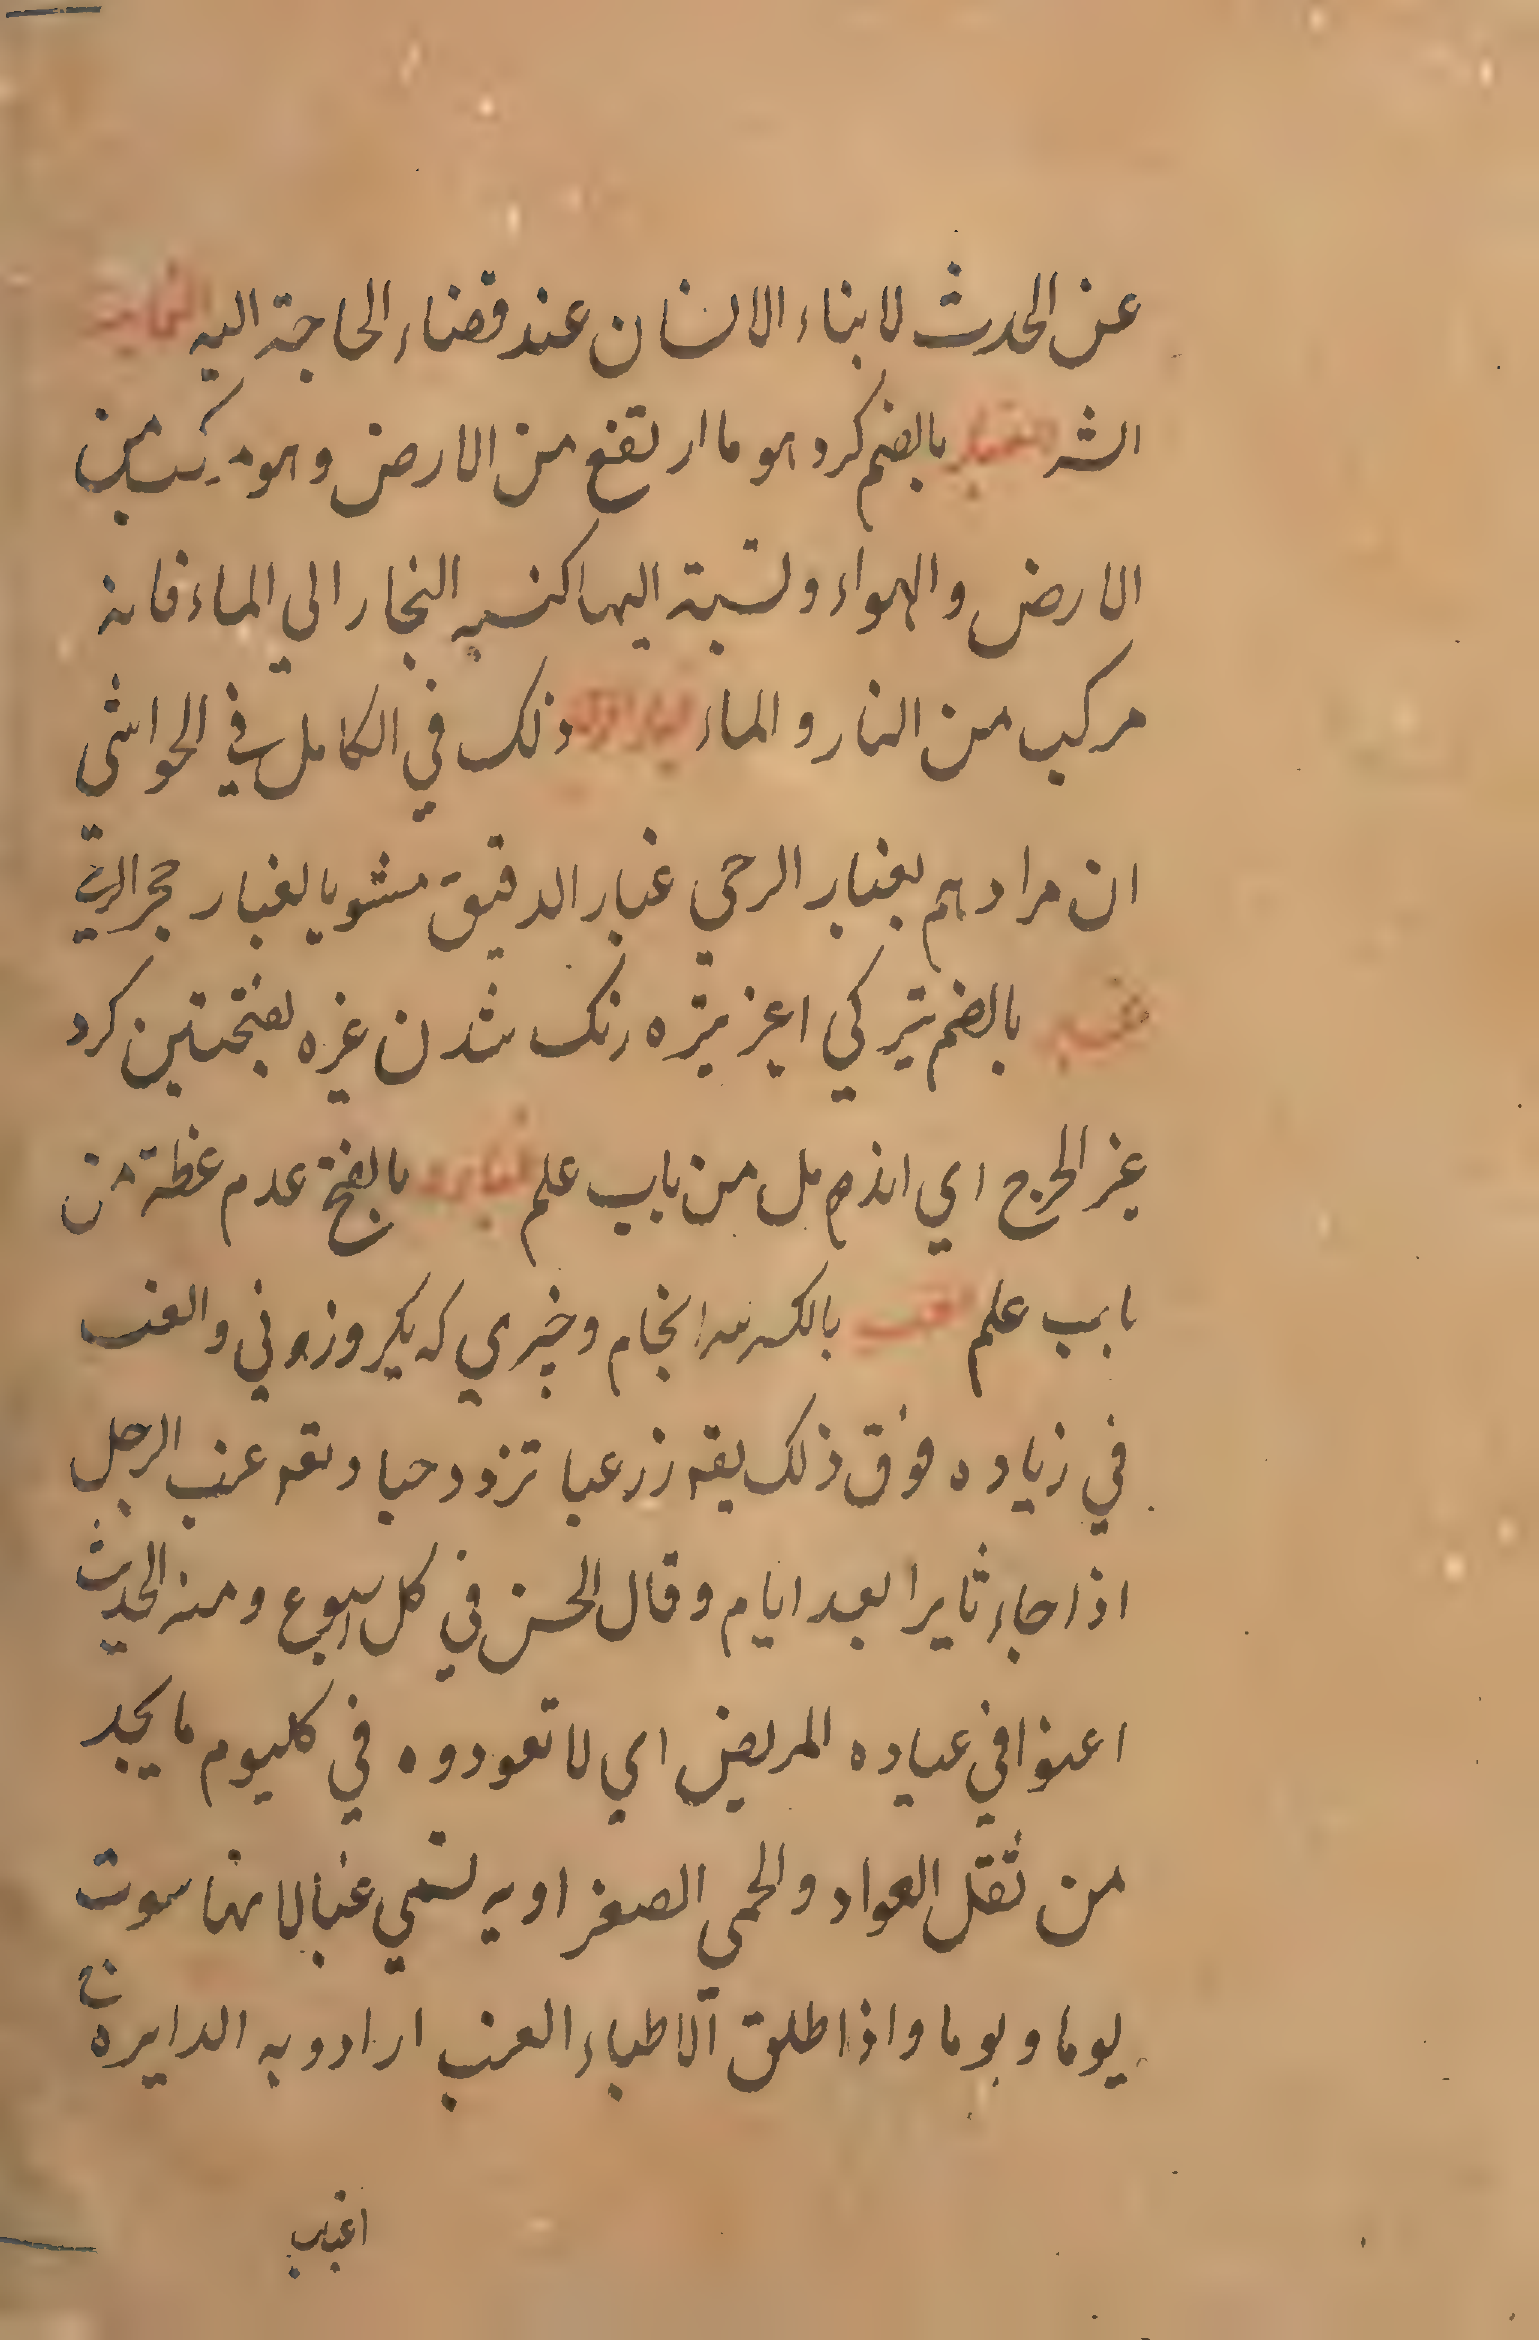 عن الحدث لابناء الانسان عند قضاء الحاجة اليه
الشر الغبار بالضم كرد هو ما ارتفع من الارض وهو مركب من
الارض والهواء ونسبة اليها كنسبه البخار الي الماء فانه
مركب من النار والماء ذلك في الكامل في الحواشي
ان مرادهم بغبار الرحي غبار الدقيق مشوبا بغبار حجر الرحي
بالضم تيركي اعز تيره رنك شدن غبره بفتحتين كرد
غبر الجرح اي اندمل من باب علم بالفتح عدم غطة من
باب علم الغب بالكسر سرانجام وچيزي كه يكروز وني والغب
في زياده فوق ذلك يقه زر غبا تزدد حبا ويقه غب الرجل
اذا جاء ثايرا بعد ايام وقال الحسن في كل اسبوع ومنه الحديث
اغبوا في عياده المريض اي لا تعودوه في كليوم ما يجد
من ثقل العواد والحمي الصفراويه تسمي غبا لانها سوت
يوما ويوما واذا اطلق الاطباء الغب ارادو به الدايره
اغبب